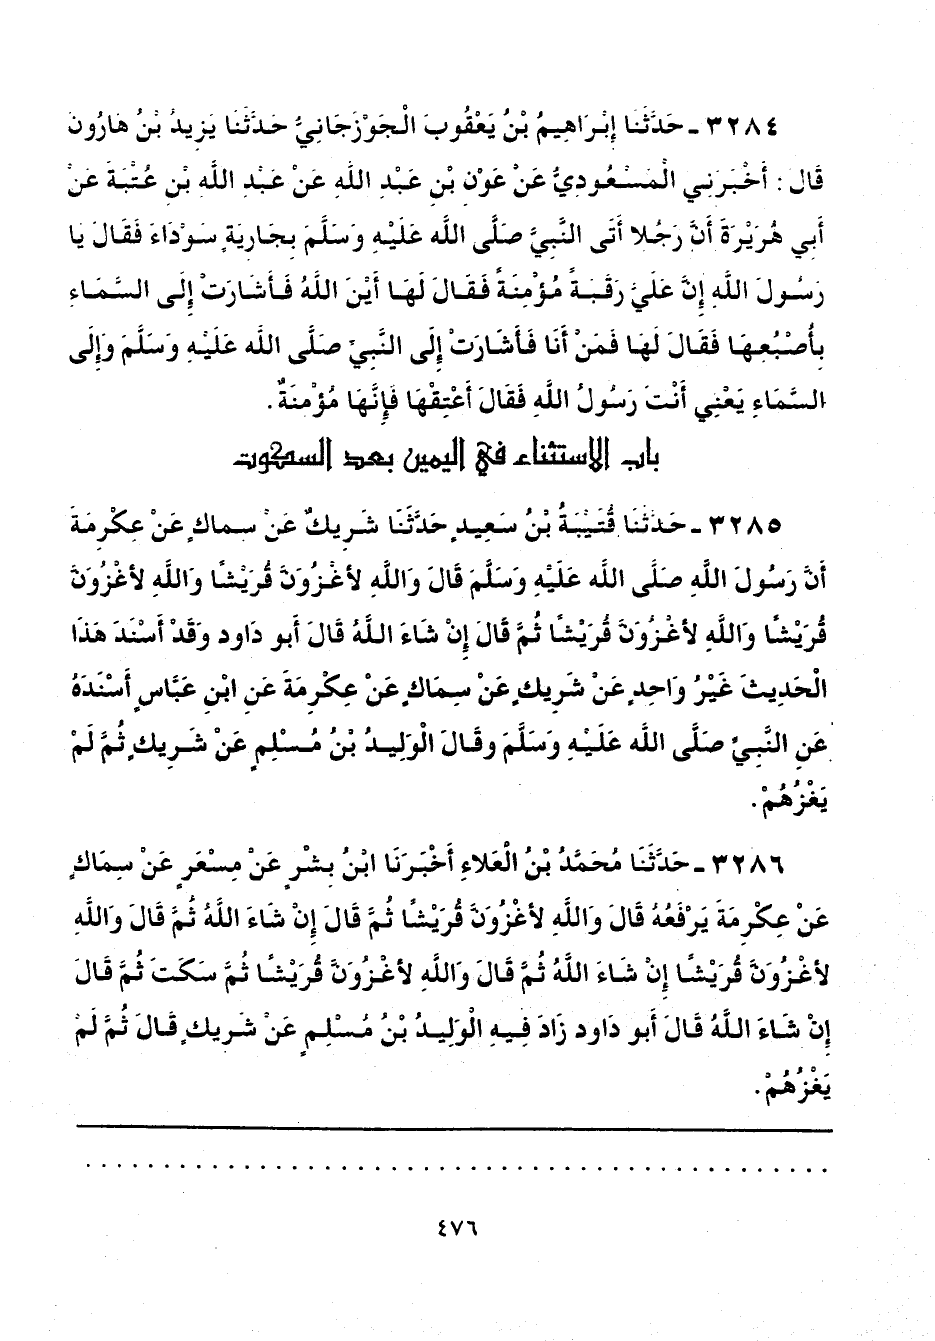 ٣٢٨٤ ـ حَدَّثَنَا إِبْرَاهِيمُ بْنُ يَعْقُوبَ الْجَوْزَجَانِيُّ حَدَّثَنَا يَزِيدُ بْنُ هَارُونَ
قَالَ : أَخْبَرَنِي الْمَسْعُودِيُّ عَنْ عَوْنِ بْنِ عَبْدِ اللَّهِ عَنْ عَبْدِ اللَّهِ بْنِ عُتْبَةَ عَنْ
أَبِي هُرَيْرَةَ أَنَّ رَجُلًا أَتَى النَّبِيَّ صَلَّى اللَّه عَلَيْهِ وَسَلَّمَ بِجَارِيَةٍ سَوْدَاءَ فَقَالَ يَا
رَسُولَ اللَّهِ إِنَّ عَلَيَّ رَقَبَةً مُؤْمِنَةً فَقَالَ لَهَا أَيْنَ اللَّهُ فَأَشَارَتْ إِلَى السَّمَاءِ
بِأُصْبُعِهَا فَقَالَ لَهَا فَمَنْ أَنَا فَأَشَارَتْ إِلَى النَّبِيِّ صَلَّى اللَّه عَلَيْهِ وَسَلَّمَ وَإِلَى
السَّمَاءِ يَعْنِي أَنْتَ رَسُولُ اللَّهِ فَقَالَ أَعْتِقْهَا فَإِنَّهَا مُؤْمِنَةٌ.
باب الاستثناء في اليمين بعد السكوت
٣٢٨٥ ـ حَدَّثَنَا قُتَيْبَةُ بْنُ سَعِيدٍ حَدَّثَنَا شَرِيكٌ عَنْ سِمَاكٍ عَنْ عِكْرِمَةَ
أَنَّ رَسُولَ اللَّهِ صَلَّى اللَّه عَلَيْهِ وَسَلَّمَ قَالَ وَاللَّهِ لأَغْزُوَنَّ قُرَيْشًا وَاللَّهِ لأَغْزُوَنَّ
قُرَيْشًا وَاللَّهِ لأَغْزُوَنَّ قُرَيْشًا ثُمَّ قَالَ إِنْ شَاءَ اللَّهُ قَالَ أَبو دَاود وَقَدْ أَسْنَدَ هَذَا
الْحَدِيثَ غَيْرُ وَاحِدٍ عَنْ شَرِيكٍ عَنْ سِمَاكٍ عَنْ عِكْرِمَةَ عَنِ ابْنِ عَبَّاسٍ أَسْنَدَهُ
عَنِ النَّبِيِّ صَلَّى اللَّه عَلَيْهِ وَسَلَّمَ وقَالَ الْوَلِيدُ بْنُ مُسْلِمٍ عَنْ شَرِيكٍ ثُمَّ لَمْ
يَغْزُهُمْ.
٣٢٨٦ ـ حَدَّثَنَا مُحَمَّدُ بْنُ الْعَلاءِ أَخْبَرَنَا ابْنُ بِشْرٍ عَنْ مِسْعَرٍ عَنْ سِمَاكٍ
عَنْ عِكْرِمَةَ يَرْفَعُهُ قَالَ وَاللَّهِ لأَغْزُوَنَّ قُرَيْشًا ثُمَّ قَالَ إِنْ شَاءَ اللَّهُ ثُمَّ قَالَ وَاللَّهِ
لأَغْزُوَنَّ قُرَيْشًا إِنْ شَاءَ اللَّهُ ثُمَّ قَالَ وَاللَّهِ لأَغْزُوَنَّ قُرَيْشًا ثُمَّ سَكَتَ ثُمَّ قَالَ
إِنْ شَاءَ اللَّهُ قَالَ أَبو دَاود زَادَ فِيهِ الْوَلِيدُ بْنُ مُسْلِمٍ عَنْ شَرِيكٍ قَالَ ثُمَّ لَمْ
يَغْزُهُمْ.
٤٧٦